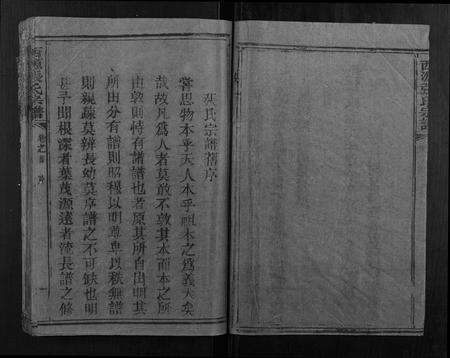 張氏宗譜舊序
嘗思物本乎天人本乎祖本之為義大矣
哉故凡為人者莫敢不敦其本而本之所
由敦則恃有譜譜也者原其所自出明其
所由分有譜則昭穆以明尊卑以秩無譜
則親疎莫辨長幼莫序譜之不可缺也明
甚予聞根深者葉茂源遠者流長譜之修
氏宗譜
序
西源張氏宗譜